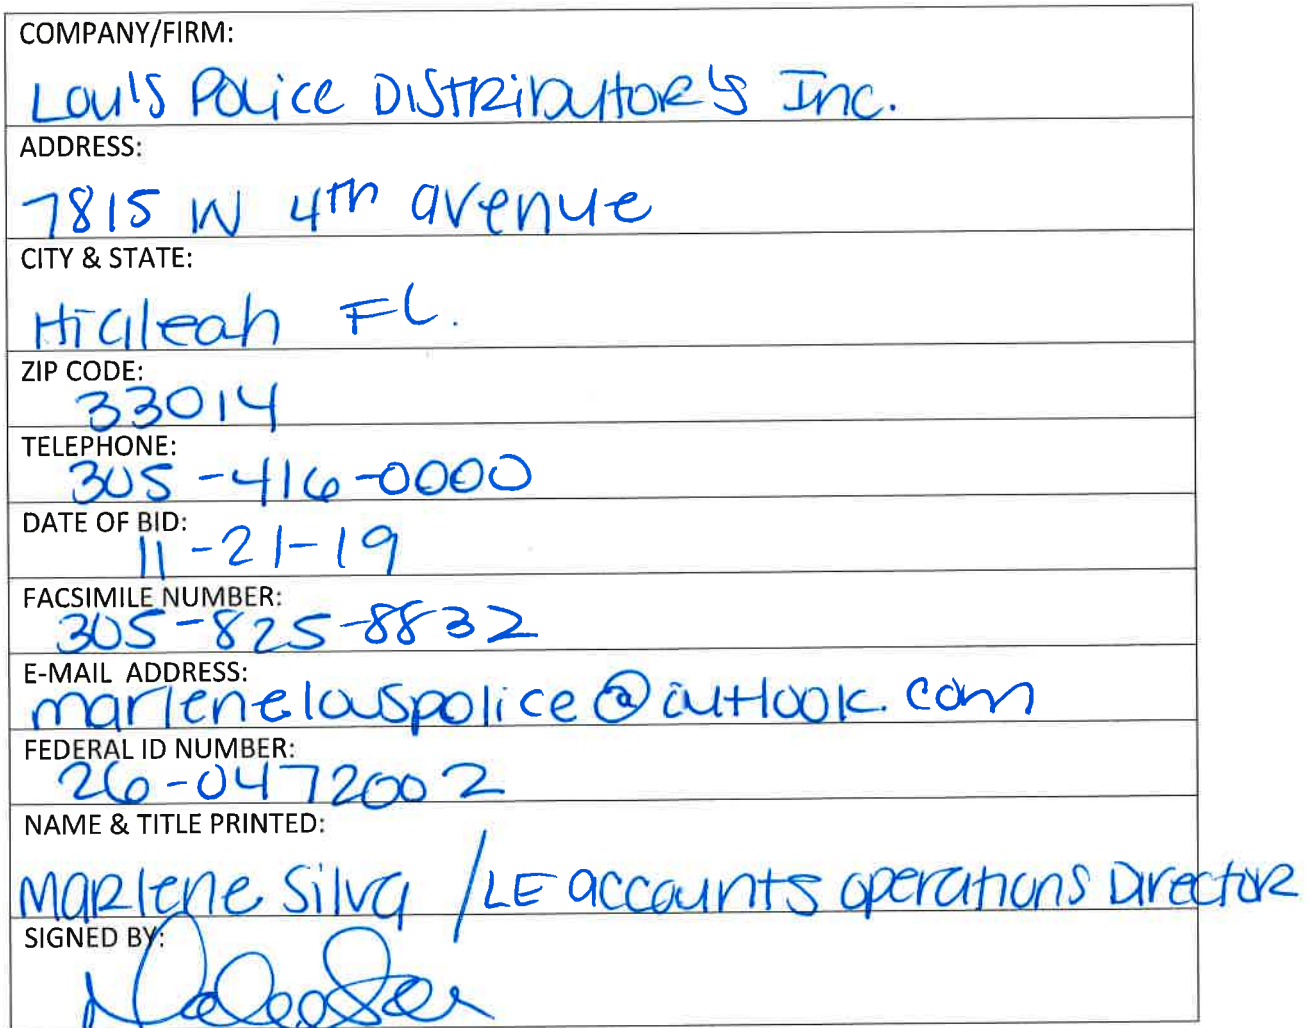 COMPANY/FIRM:
Lou's Police Distributor's Inc.
ADDRESS:
7815 W 4th avenue
CITY & STATE:
Hialeah FL.
ZIP CODE:
33014
TELEPHONE:
305-416-0000
DATE OF BID:
11-21-19
FACSIMILE NUMBER:
305-825-8832
E-MAIL ADDRESS:
marlenelouspolice@outlook.com
FEDERAL ID NUMBER:
26-0472002
NAME & TITLE PRINTED:
Marlene Silva / LE accounts operations Director
SIGNED BY: